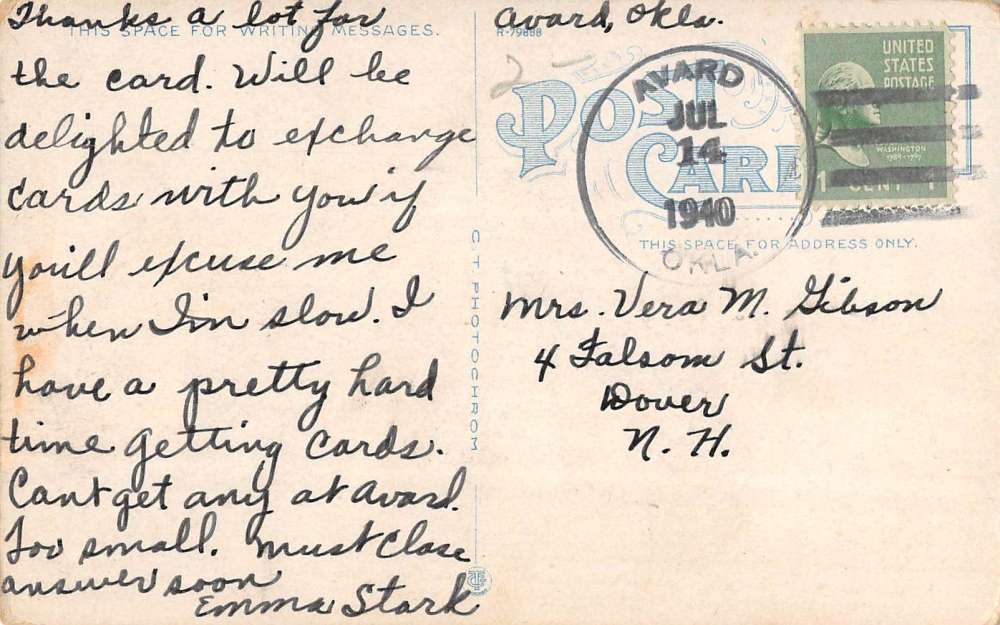 Thanks a lot for
THIS SPACE FOR WRITING MESSAGES.
the card. Will be
delighted to exchange
cards with you if
you'll excuse me
when I'm slow. I
have a pretty hard
time getting cards.
Cant get any at Avard.
Too small. Must close
answer soon
Emma Stark
C T PHOTOCHROM
Avard, Okla.
R-79888
2
POST CARD
AVARD
JUL
14
1940
OKLA.
UNITED
STATES
POSTAGE
WASHINGTON
1789-1797
1 CENT 1
THIS SPACE FOR ADDRESS ONLY.
Mrs. Vera M. Gibson
4 Folsom St.
Dover
N. H.